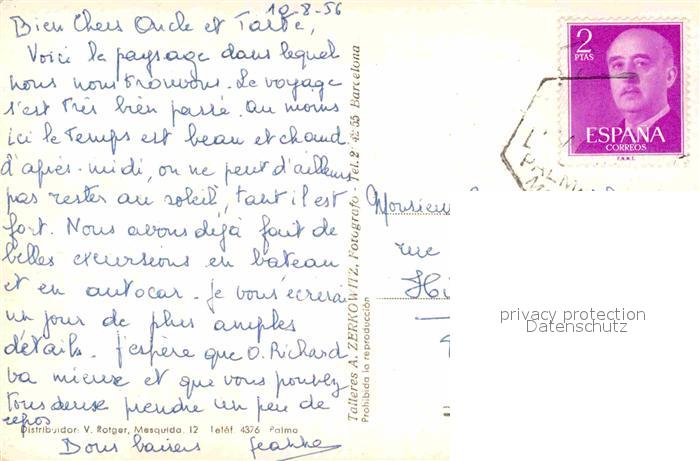 10-8-56
Bien Chers Oncle et Tante,
Voici le paysage dans lequel
nous nous trouvons. Le voyage
s'est très bien passé. Au moins
ici le temps est beau et chaud.
d'après-midi, on ne peut d'ailleurs
pas rester au soleil, tant il est
fort. Nous avons déjà fait de
belles excursions en bateau
et en autocar. Je vous écrirai
un jour de plus amples
détails. J'espère que O. Richard
va mieux et que vous pouvez
tous deux prendre un peu de
repos
Bons baisers
Distribuidor: V. Rotger, Mesquida, 12 Teléf. 4376 Palma
Talleres A. ZERKOWITZ, Fotógrafo - Tel. 2 Barcelona
Prohibida la reproducción
2
PTAS
ESPAÑA
CORREOS
F.N.M.T.
PALM
Monsieur
rue
privacy protection
Datenschutz